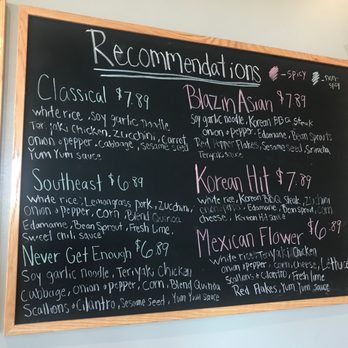 Recommendations
-spicy
-non-spicy
Classical $7.89
white rice, soy garlic noodle
Toriyaki Chicken, Zucchini, Carrot
onion + pepper, Cabbage, sesame seed
Yum Yum sauce
Blazin Asian $7.89
Soy garlic noodle, Korean BBQ Steak
onion + pepper, Edamame, Bean Sprouts
Red Pepper Flakes, Sesame Seed, Sriracha
Teriyaki sauce
Southeast $6.89
white rice, Lemongrass Pork, Zucchini,
onion + pepper, corn, Blend Quinoa
Edamame, Bean Sprout, Fresh Lime
Sweet chili sauce
Korean Hit $7.89
white rice, Korean BBQ Steak, Zucchini
onion + pepper, Edamame, Bean Sprout, corn
Cheese, Korean Hot sauce
Never Get Enough $6.89
Soy garlic noodle, Teriyaki Chicken
Cabbage, onion + pepper, Corn, Blend Quinoa
Scallions + Cilantro, Sesame Seed, Yum Yum Sauce
Mexican Flower $6.89
White rice, Teriyaki Chicken
onion + pepper, corn, Cheese, Lettuce
Scallions + Cilantro, Fresh lime
Red Flakes, Yum Yum Sauce